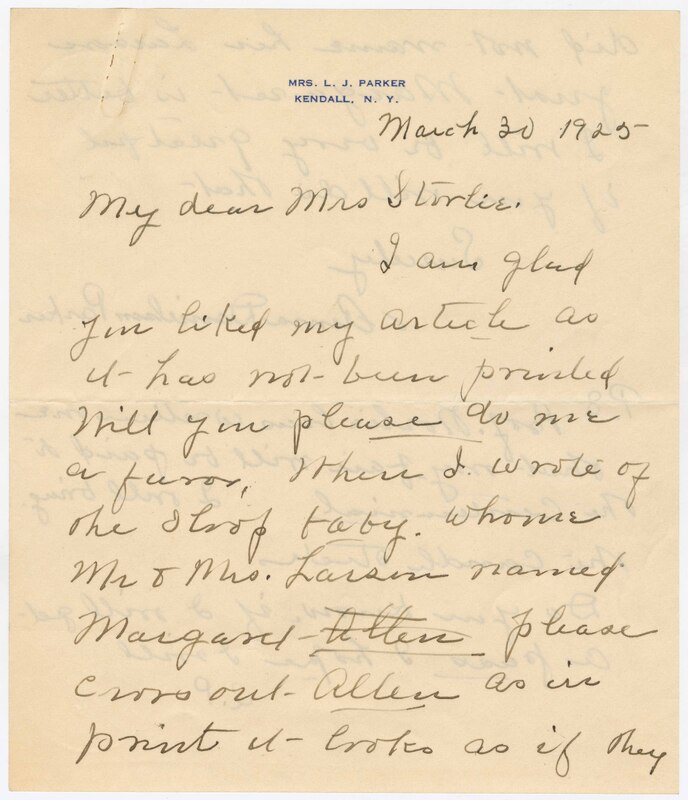 MRS. L. J. PARKER
KENDALL, N. Y.
March 30 1925
My dear Mrs Storlie.
I am glad
you liked my article as
it has not been printed
Will you please do me
a favor, When I wrote of
the Sloop baby. whome
Mr & Mrs. Larson named
Margaret Allen please
cross out Allen as in
print it looks as if they